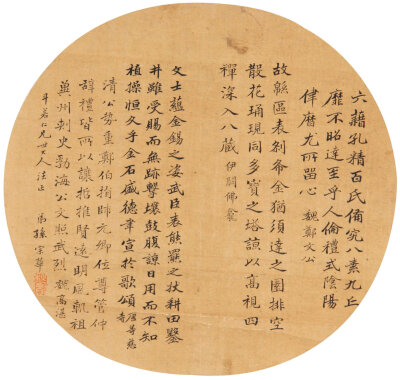 六藉孔精百氏備究八素九丘
靡不昭達至乎人倫禮式陰陽
律曆尤所留心 魏鄭文公
故緜區表剎布金猶須達之園排空
散花踊現同多寶之塔諒以高視四
禪深入八藏 伊闕佛龕
文士蘊金錫之姿武臣表熊羆之狀耕田鑿
井雖受賜而無跡擊壤鼓腹諒日用而不知
植操恒久乎金石盛德韋宣於歌頌 唐等慈寺
清公勢重鄭伯捐師元卿位尊管仲
辭禮皆所以讓哲推賢遠明風軌祖
瀛州刺史勃海公文照武烈 魏高湛
仁兄大人法正 孫宗華